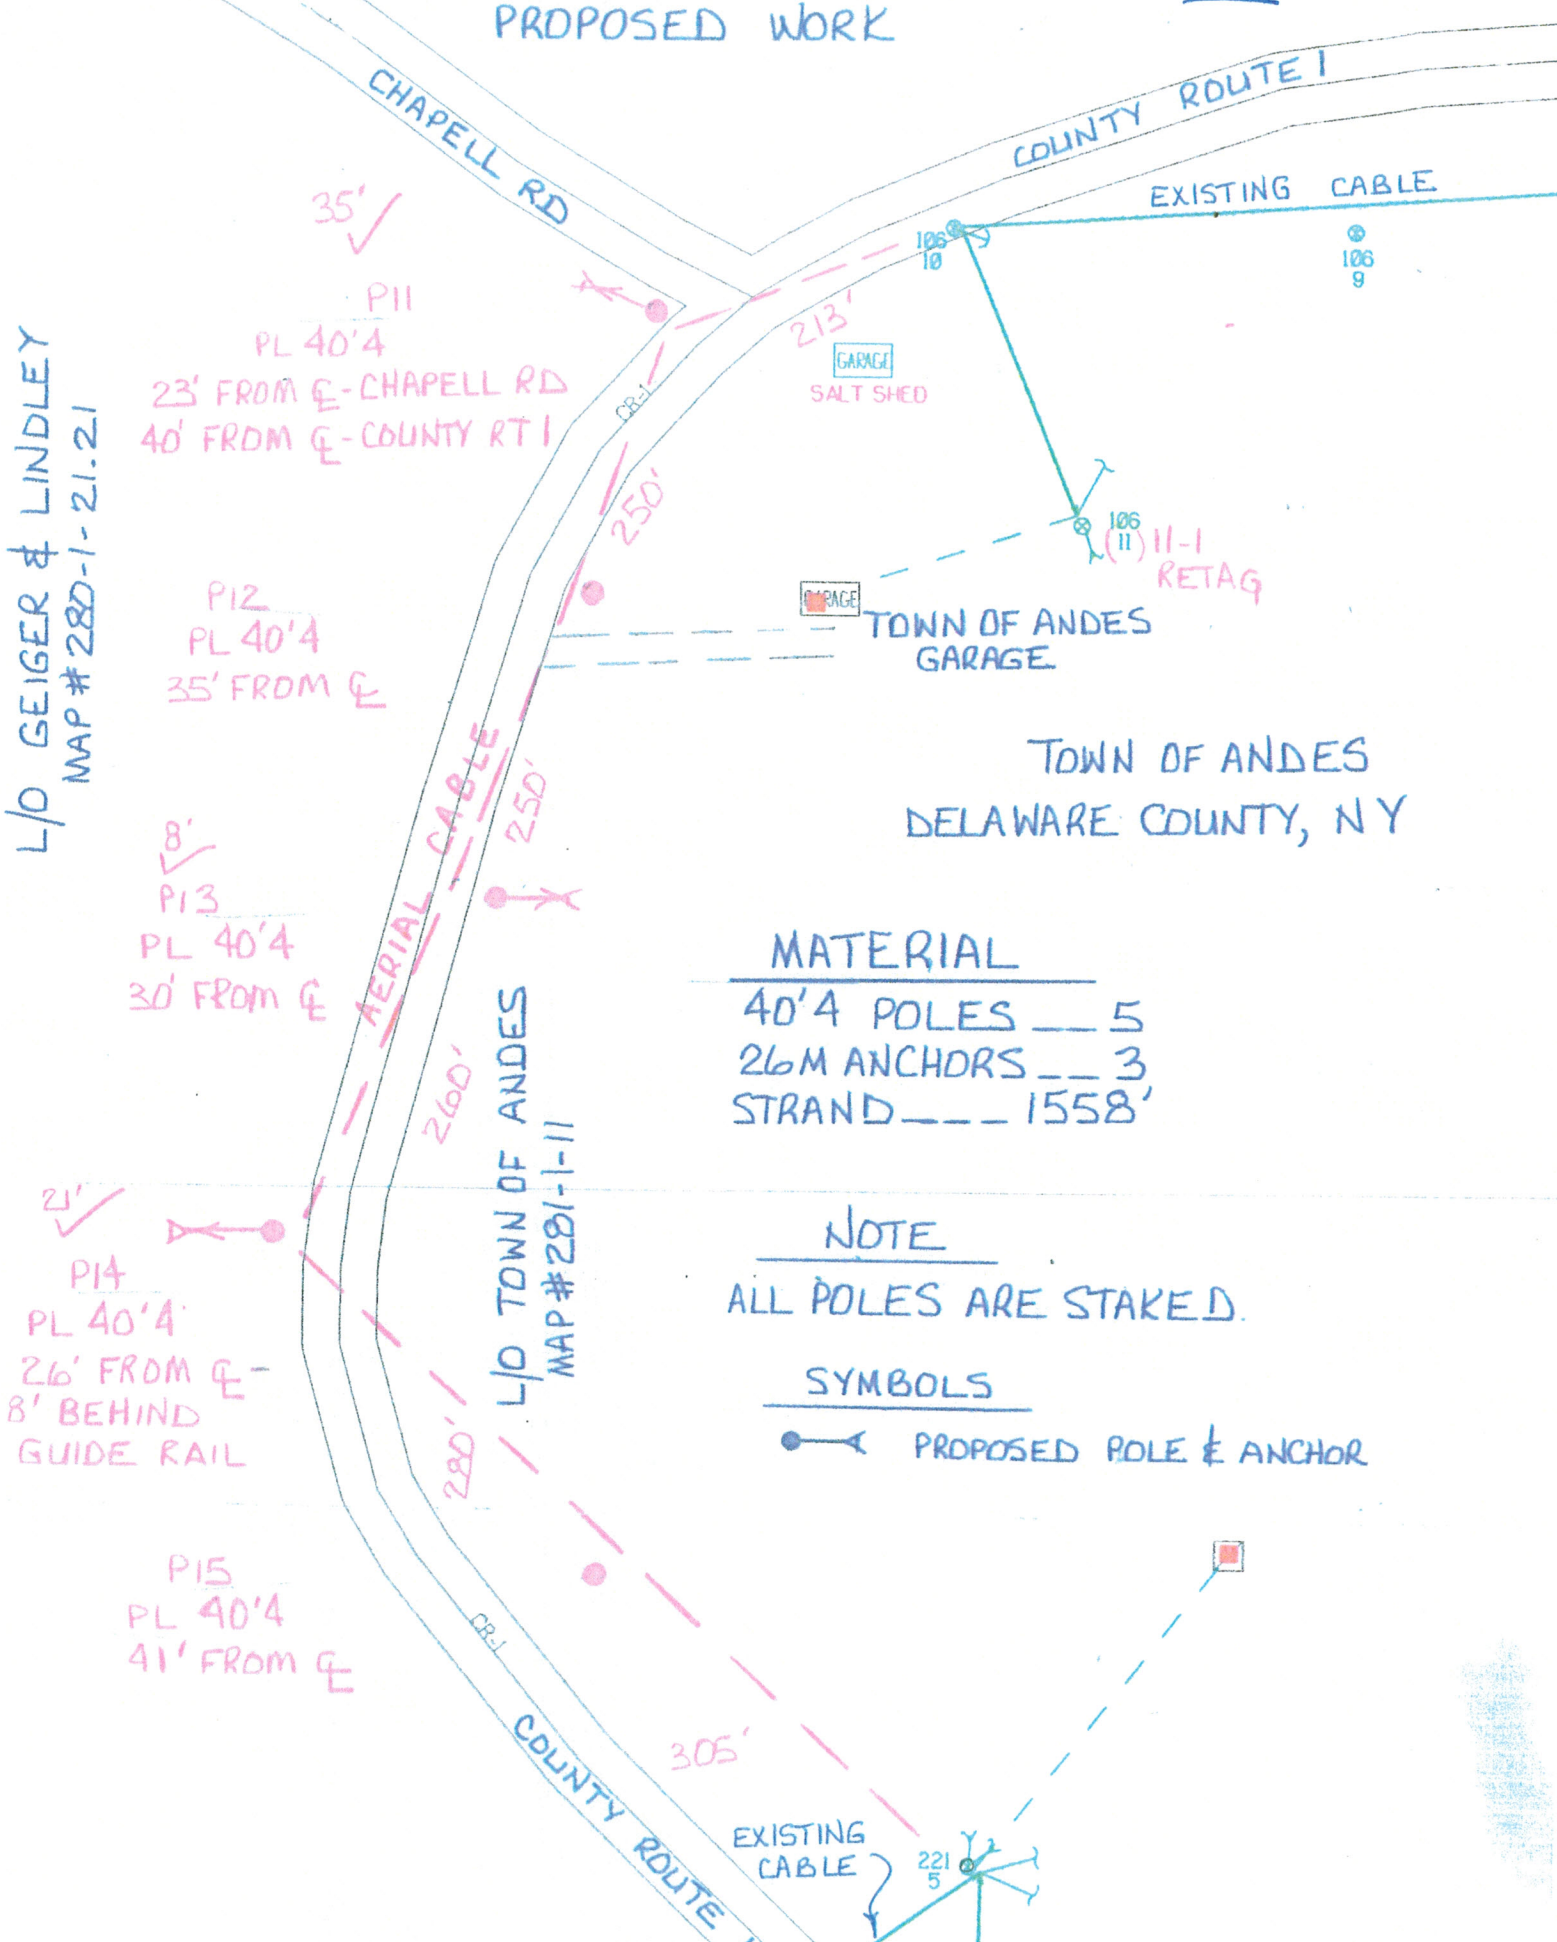 PROPOSED WORK
CHAPELL RD
COUNTY ROUTE 1
EXISTING CABLE
106
10
106
9
35'
P11
PL 40'4
23' FROM ℄-CHAPELL RD
40' FROM ℄-COUNTY RT 1
213'
GARAGE
SALT SHED
CR-1
250'
L/O GEIGER & LINDLEY
MAP #280-1-21.21
106
(11) 11-1
RETAG
P12
PL 40'4
35' FROM ℄
GARAGE
TOWN OF ANDES
GARAGE
AERIAL CABLE
250'
TOWN OF ANDES
DELAWARE COUNTY, NY
8'
P13
PL 40'4
30' FROM ℄
MATERIAL
40'4 POLES __ 5
26M ANCHORS __ 3
STRAND ___ 1558'
260'
L/O TOWN OF ANDES
MAP #281-1-11
21'
P14
PL 40'4
26' FROM ℄-
8' BEHIND
GUIDE RAIL
NOTE
ALL POLES ARE STAKED.
SYMBOLS
PROPOSED POLE & ANCHOR
280'
P15
PL 40'4
41' FROM ℄
CR-1
305'
COUNTY ROUTE
EXISTING
CABLE
221
5